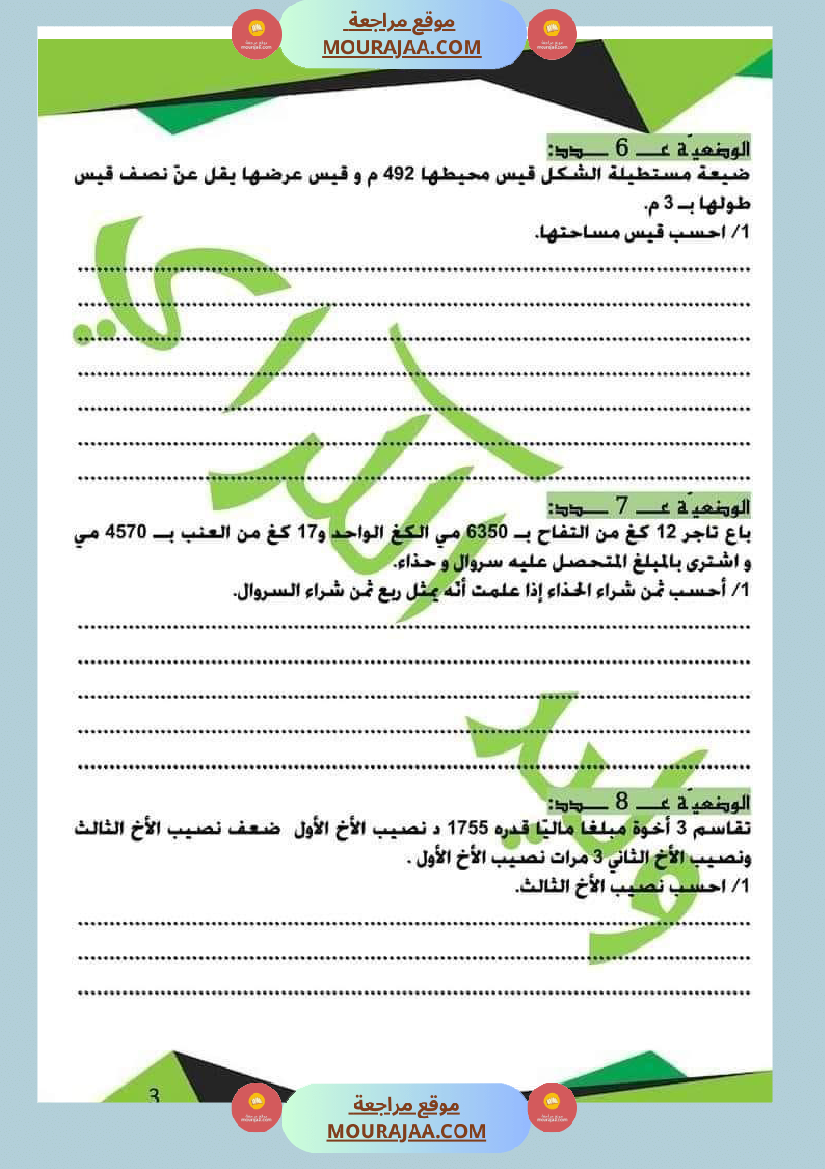 موقع مراجعة
MOURAJAA.COM
الوضعيّة عـــ 6 ـــدد:
ضيعة مستطيلة الشكل قيس محيطها 492 م و قيس عرضها يقل عنّ نصف قيس
طولها بــ 3 م.
1/ احسب قيس مساحتها.
الوضعيّة عـــ 7 ـــدد:
باع تاجر 12 كغ من التفاح بــ 6350 مي الكغ الواحد و17 كغ من العنب بــ 4570 مي
و اشترى بالمبلغ المتحصل عليه سروال و حذاء.
1/ أحسب ثمن شراء الحذاء إذا علمت أنّه يمثل ربع ثمن شراء السروال.
الوضعيّة عـــ 8 ـــدد:
تقاسم 3 أخوة مبلغا ماليّا قدره 1755 د نصيب الأخ الأول ضعف نصيب الأخ الثالث
ونصيب الأخ الثاني 3 مرات نصيب الأخ الأول .
1/ احسب نصيب الأخ الثالث.
3
موقع مراجعة
MOURAJAA.COM